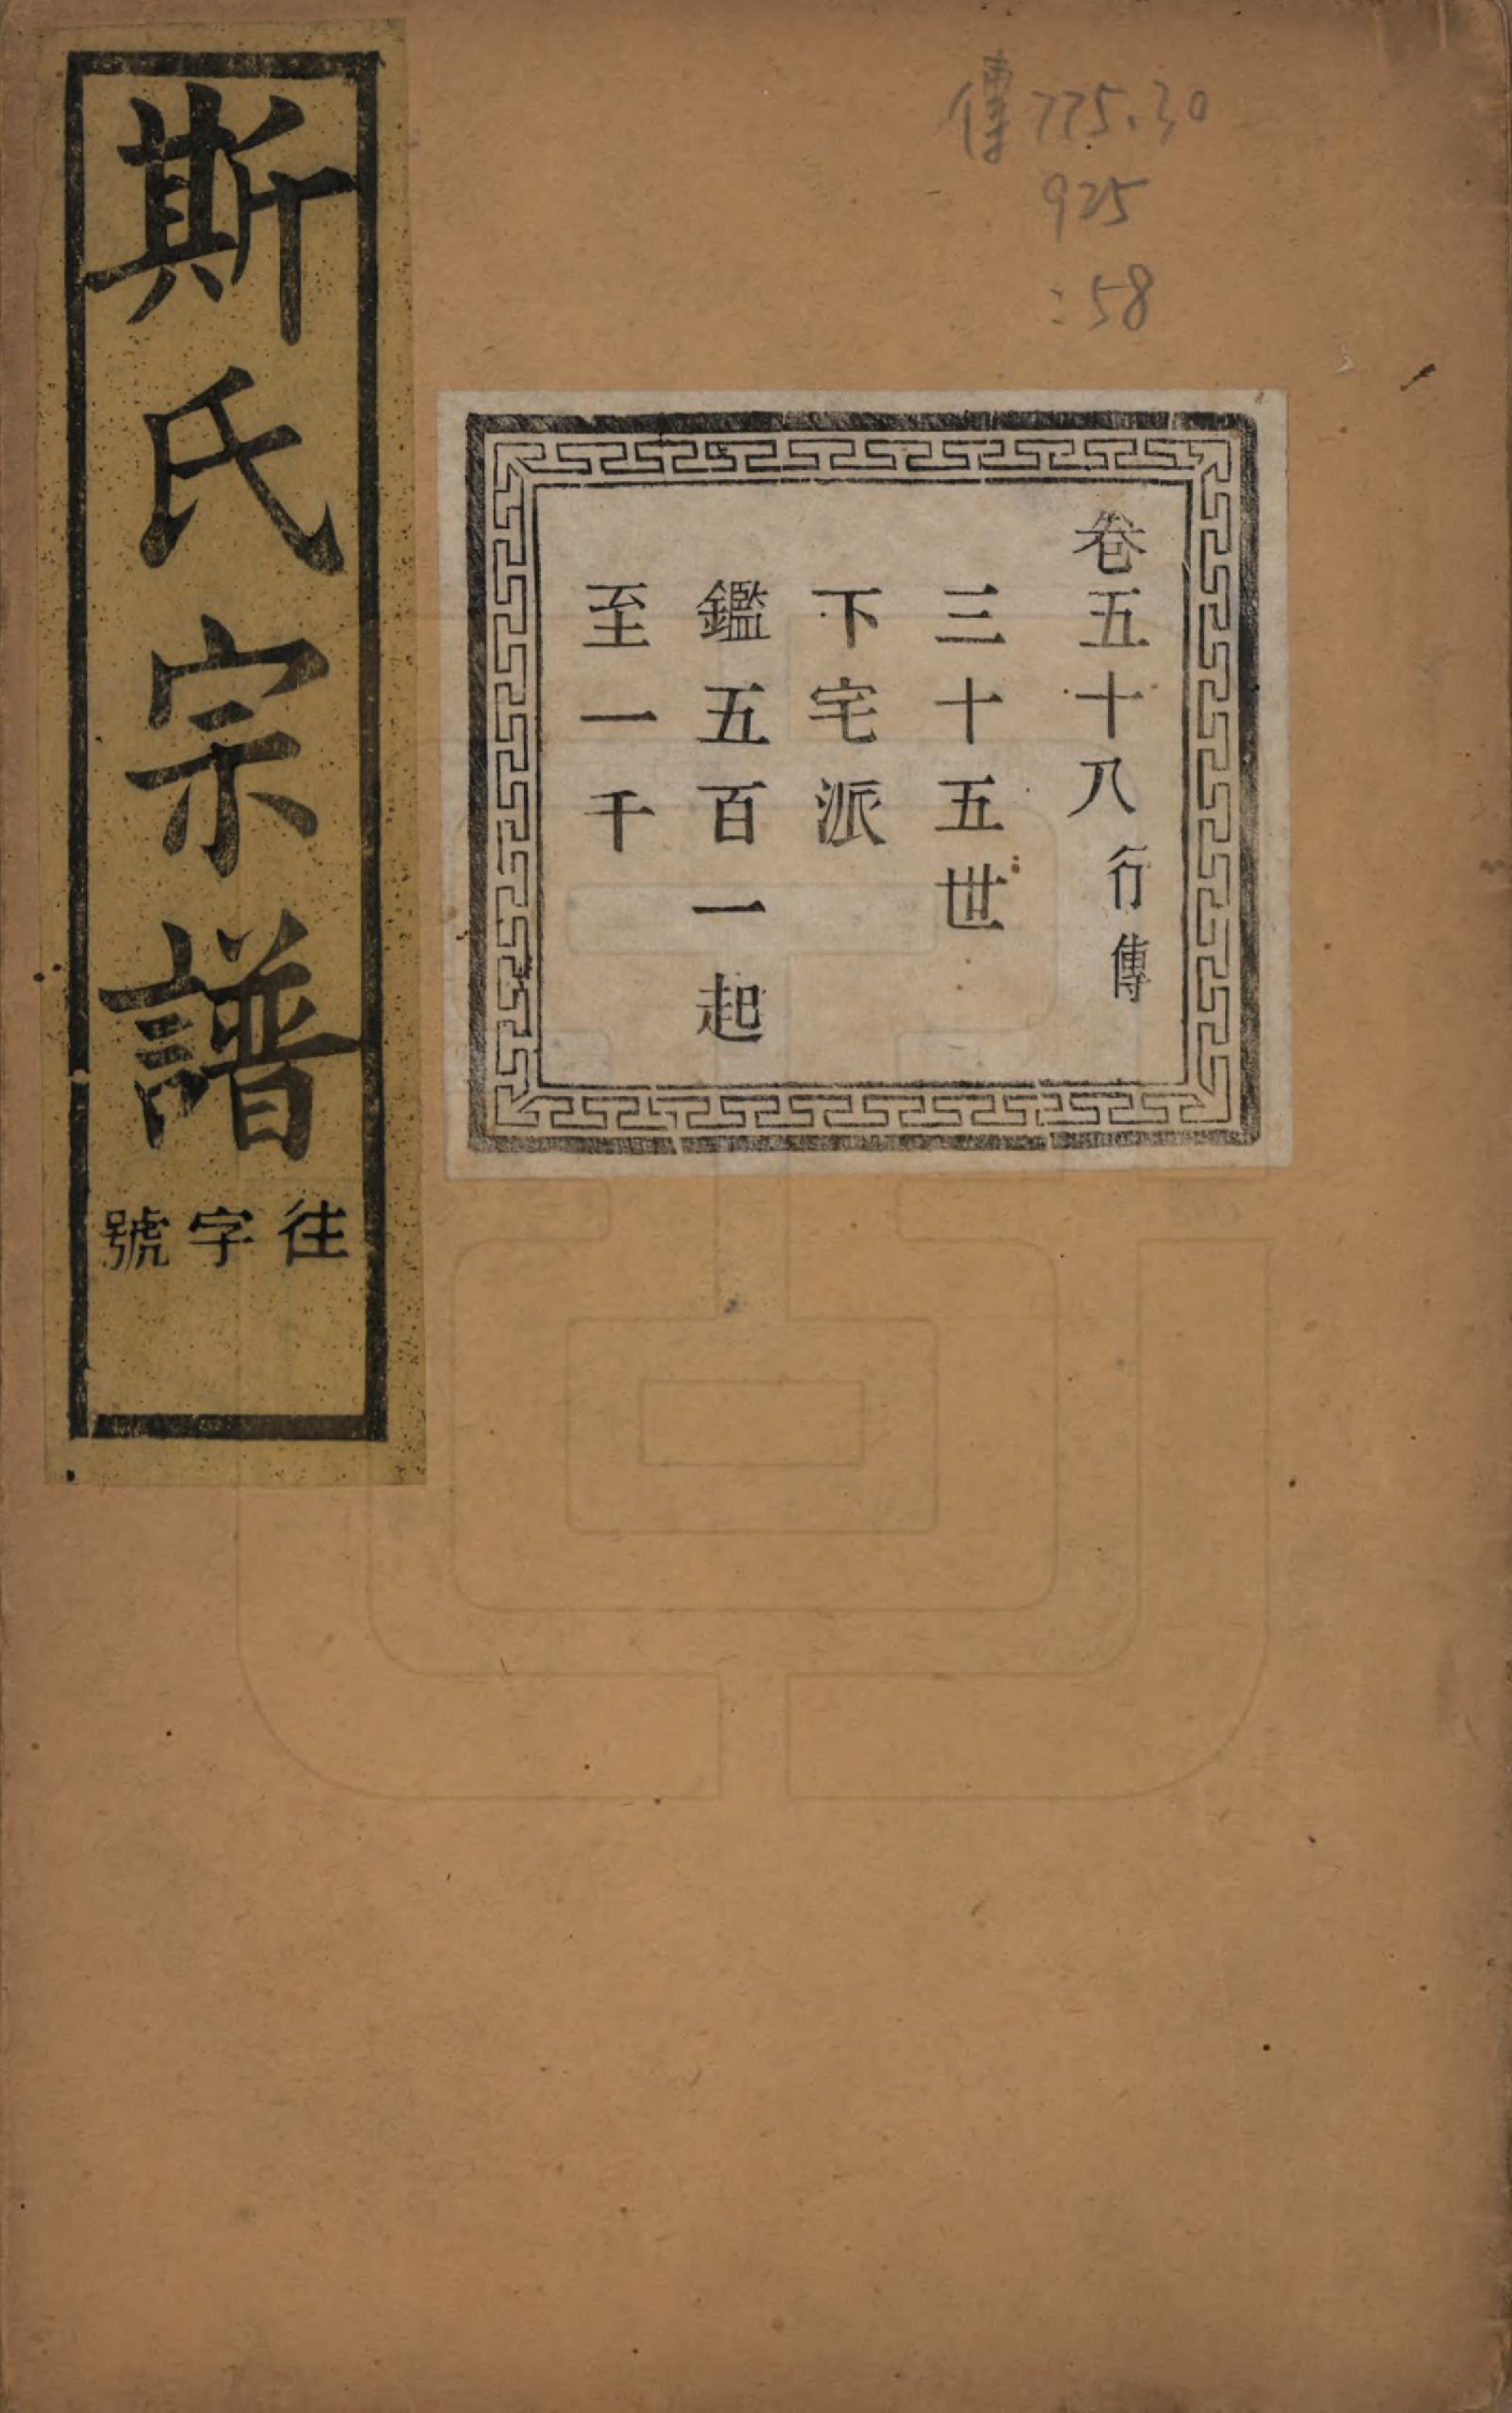 傳 775.30
925
:58
卷五十八行傳
三十五世
下宅派
鑑五百一起
至一千
斯氏宗譜
往字號